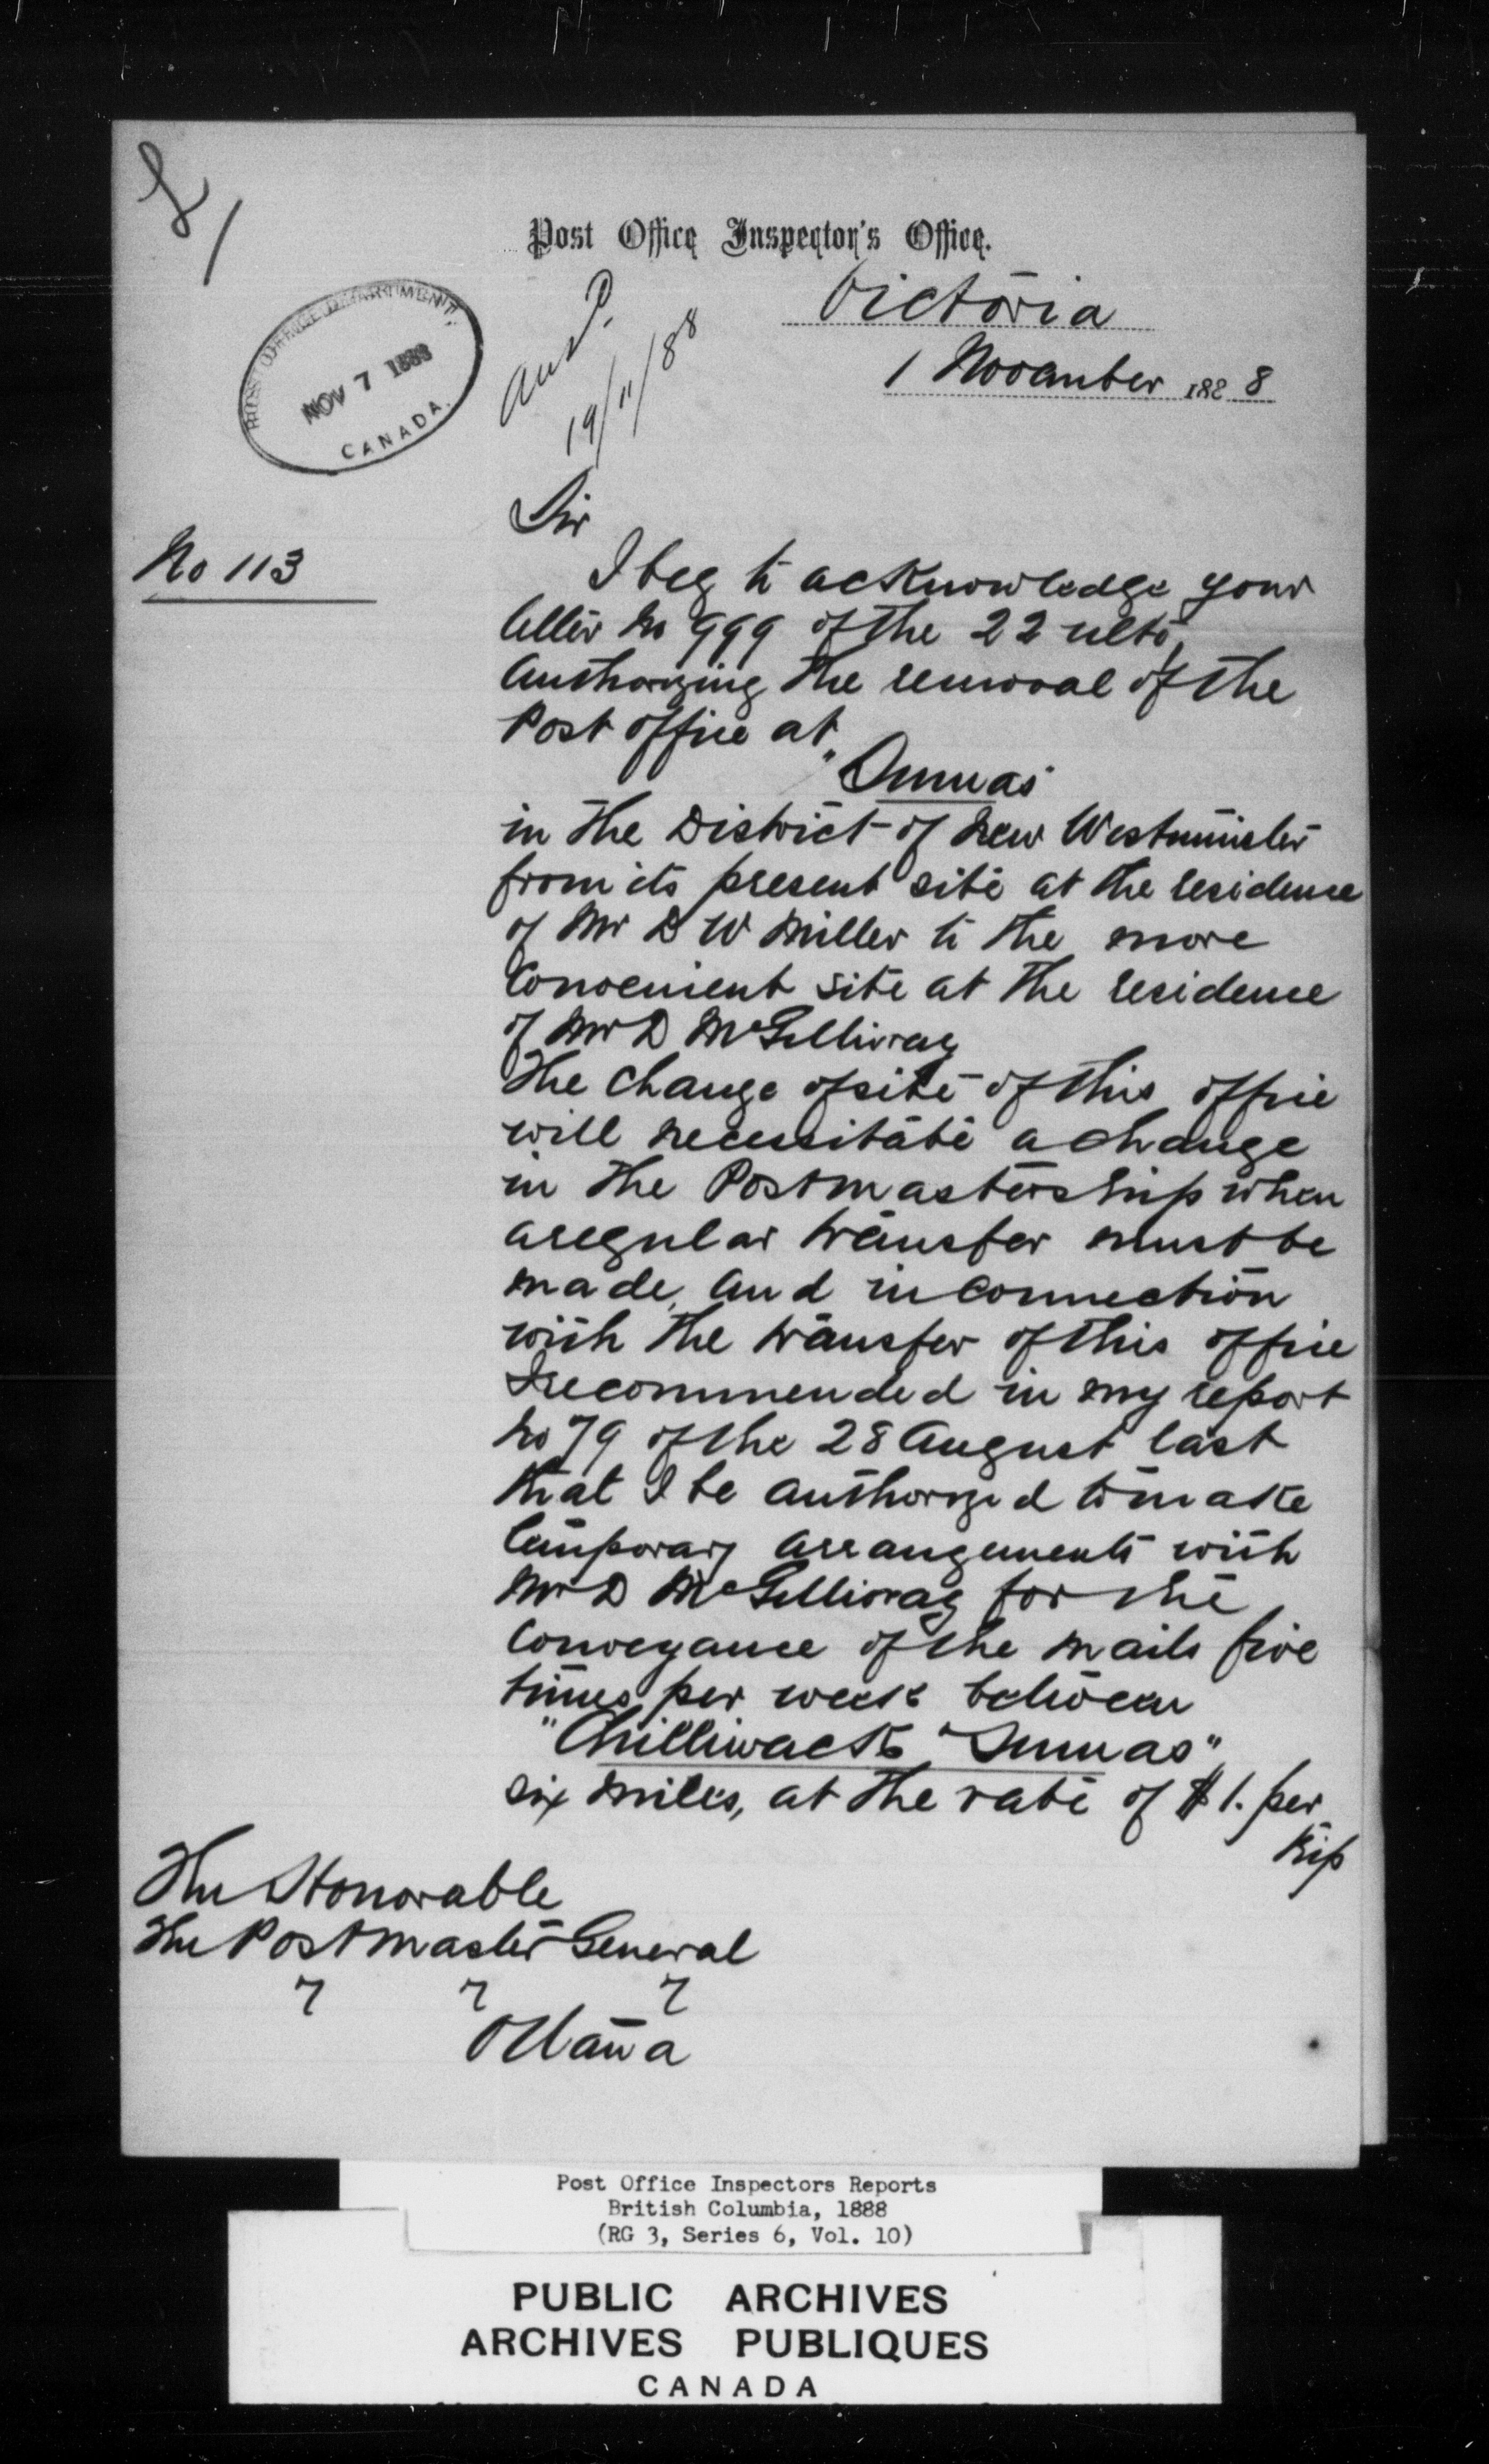 Post Office Inspector's Office.
Victoria
1 November 1888
POST OFFICE DEPARTMENT
NOV 7 1888
CANADA
Ansd.
19/11/88
Sir
No 113
I beg to acknowledge your
letter No 999 of the 22 ulto,
authorizing the removal of the
Post office at
"Sumas"
in the District of New Westminster
from its present site at the residence
of Mr D W Miller to the more
convenient site at the residence
of Mr D McGillivray
The change of site of this office
will necessitate a change
in the Postmastership when
a regular transfer must be
made, and in connection
with the transfer of this office
I recommended in my report
No 79 of the 28 August last
that I be authorized to make
temporary arrangements with
Mr D McGillivray for the
conveyance of the mails five
times per week between
"Chilliwack & Sumas"
six miles, at the rate of $1. per
trip
The Honorable
The Postmaster General
Ottawa
Post Office Inspectors Reports
British Columbia, 1888
(RG 3, Series 6, Vol. 10)
PUBLIC ARCHIVES
ARCHIVES PUBLIQUES
CANADA